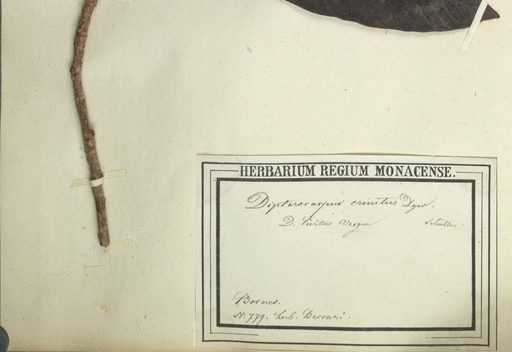 HERBARIUM REGIUM MONACENSE.
Dipterocarpus crinitus Dyer.
D. hirtus Vesque
Borneo.
N. 779. herb. Beccari.